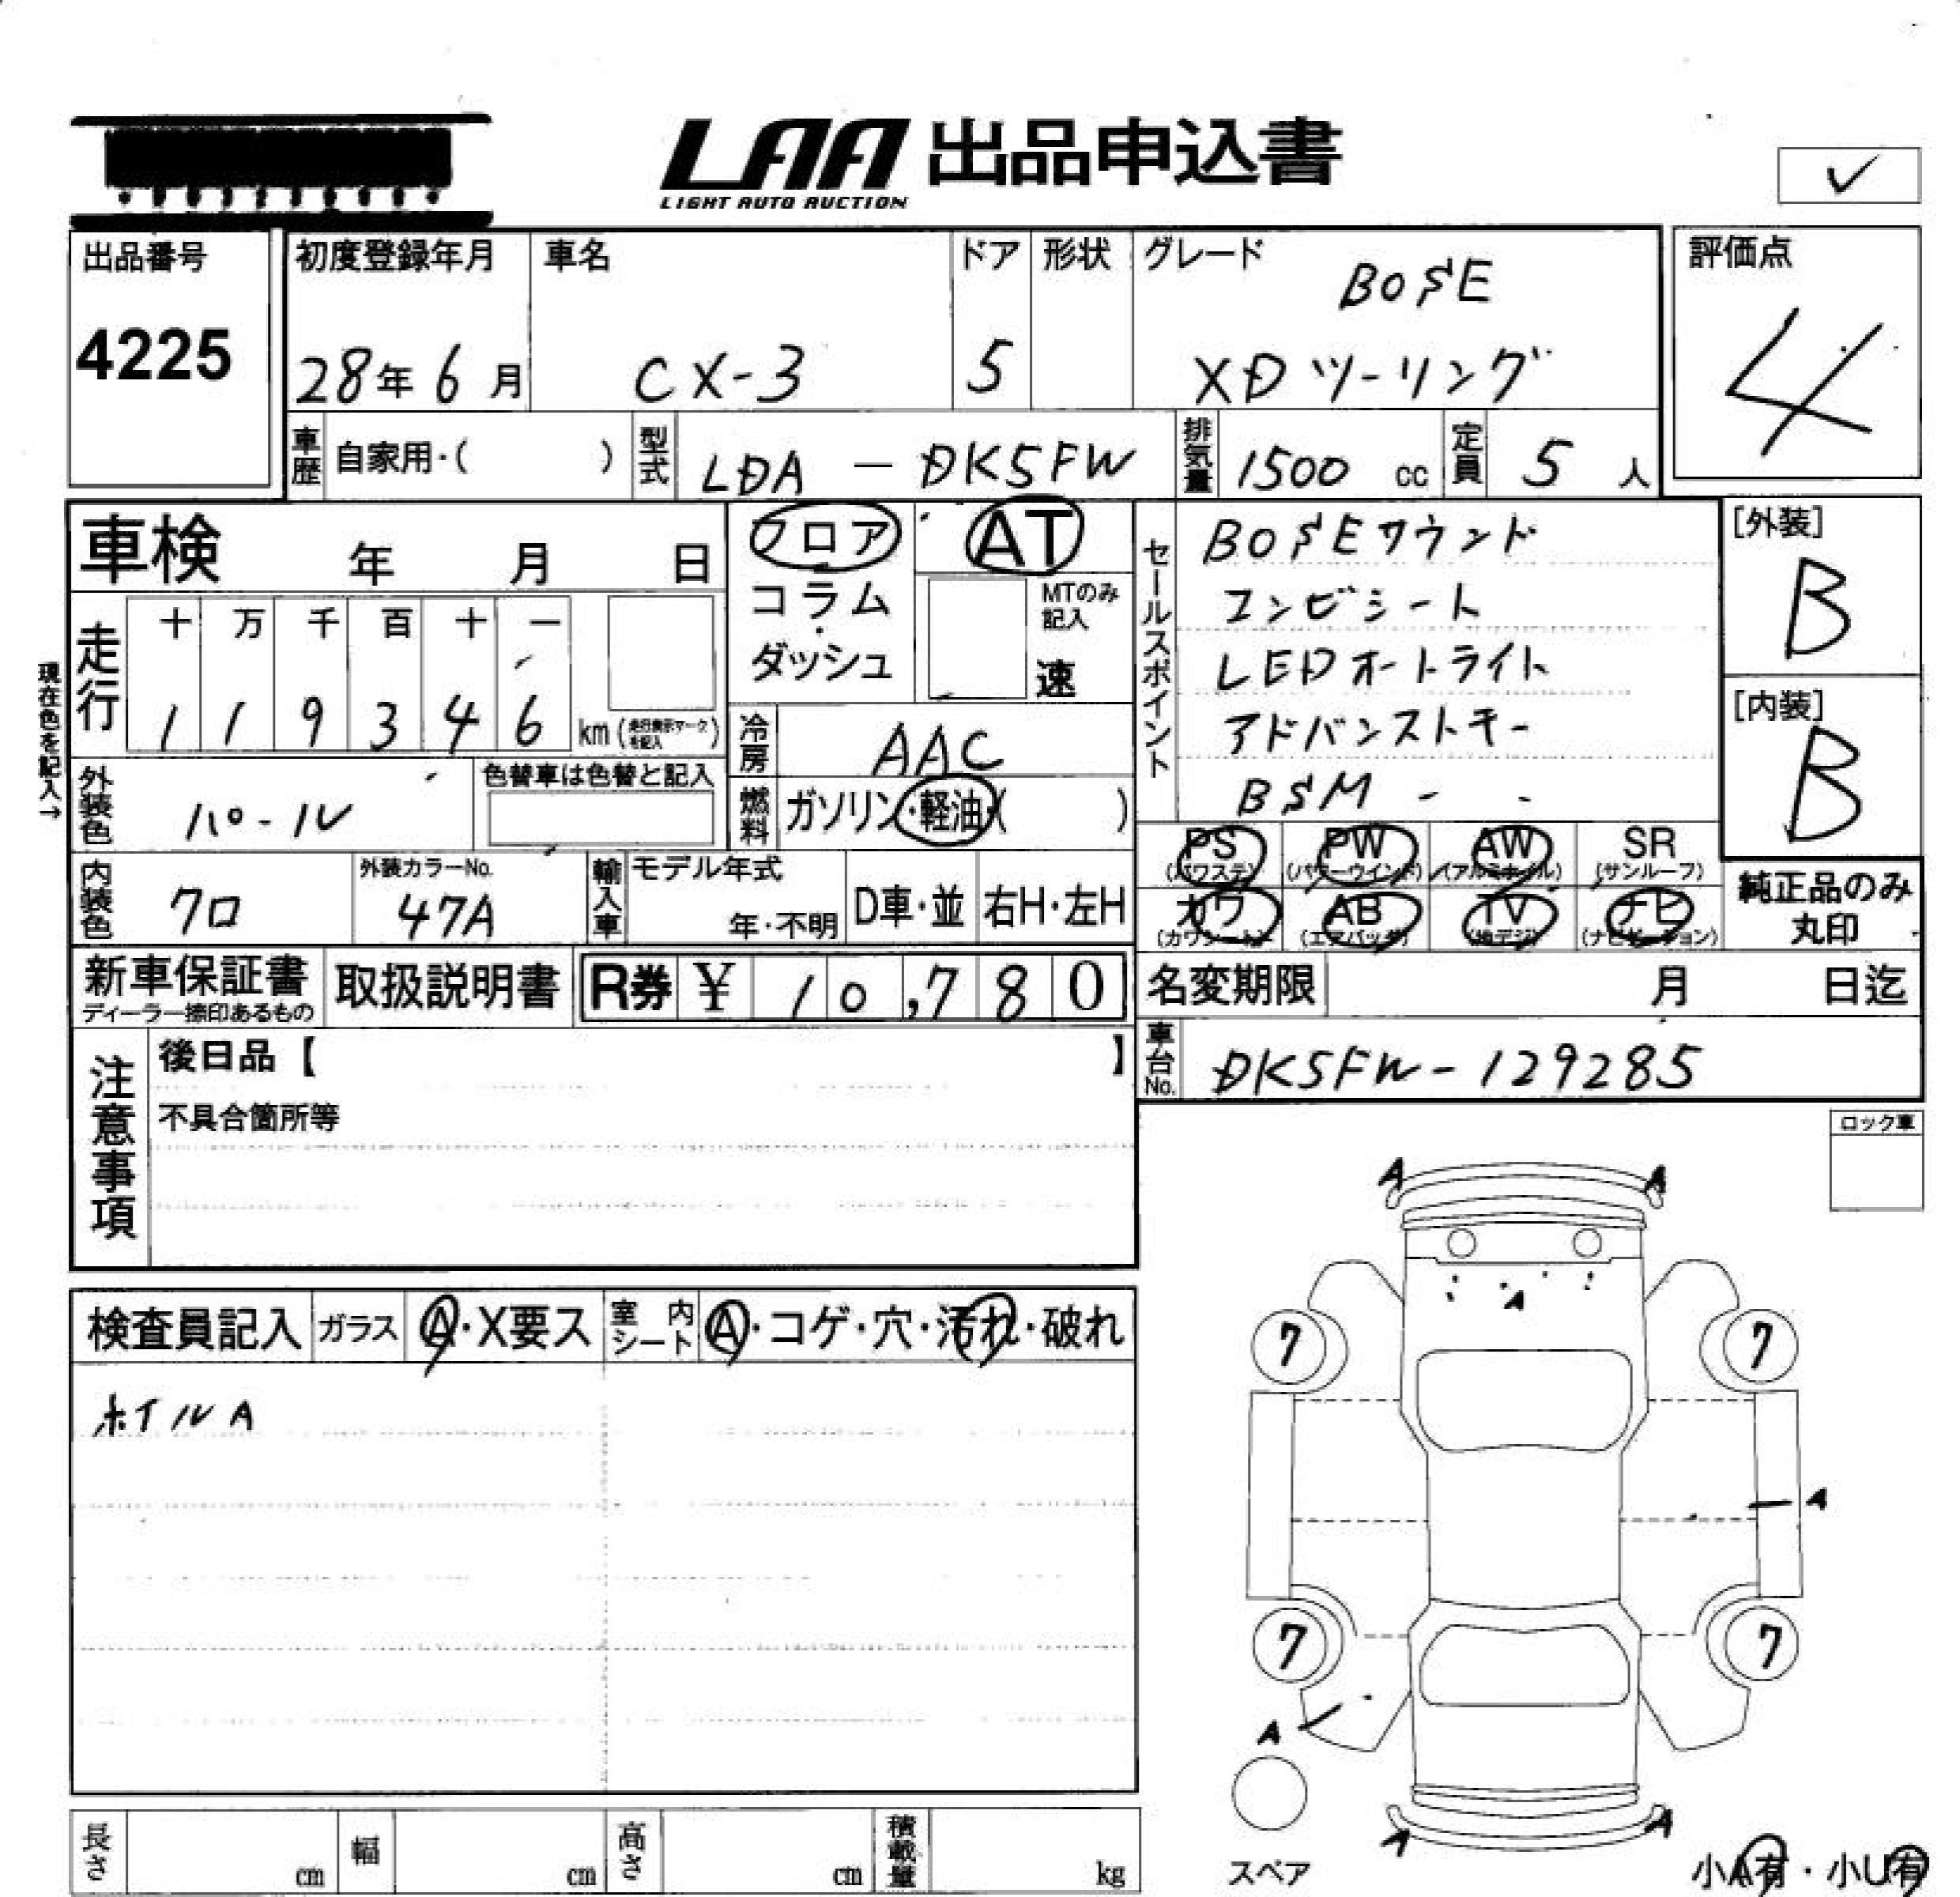 LAA 出品申込書
LIGHT AUTO AUCTION
✓
出品番号
4225
初度登録年月
28年 6月
車名
CX-3
ドア
5
形状
グレード
BOSE
XDツーリング
評価点
4
車歴 自家用・( )
型式 LDA - DK5FW
排気量 1500 cc
定員 5 人
車検 年 月 日
フロア
コラム
・
ダッシュ
AT
MTのみ記入
速
セールスポイント
BOSEサウンド
コンビシート
LEDオートライト
アドバンストキー
BSM - -
[外装]
B
[内装]
B
現在色を記入→
走行
十 万 千 百 十 一
1 1 9 3 4 6 km (走行表示マークを記入)
冷房 AAC
外装色 パール
色替車は色替と記入
燃料 ガソリン・軽油・( )
PS (パワステ)
PW (パワーウインド)
AW (アルミホイル)
SR (サンルーフ)
カワ (カワシート)
AB (エアバッグ)
TV (地デジ)
ナビ (ナビゲーション)
純正品のみ
丸印
内装色 クロ
外装カラーNo.
47A
輸入車 モデル年式
年・不明
D車・並
右H・左H
新車保証書
ディーラー捺印あるもの
取扱説明書
R券 ¥ 10,780
名変期限 月 日迄
車台No. DK5FW-129285
注意事項
後日品【 】
不具合箇所等
ロック車
検査員記入
ガラス A・X要ス
室内シート A・コゲ・穴・汚れ・破れ
ホイルA
A A
A
7 7
A
7 7
A
A A
スペア
小A有・小U有
長さ cm
幅 cm
高さ cm
積載量 kg